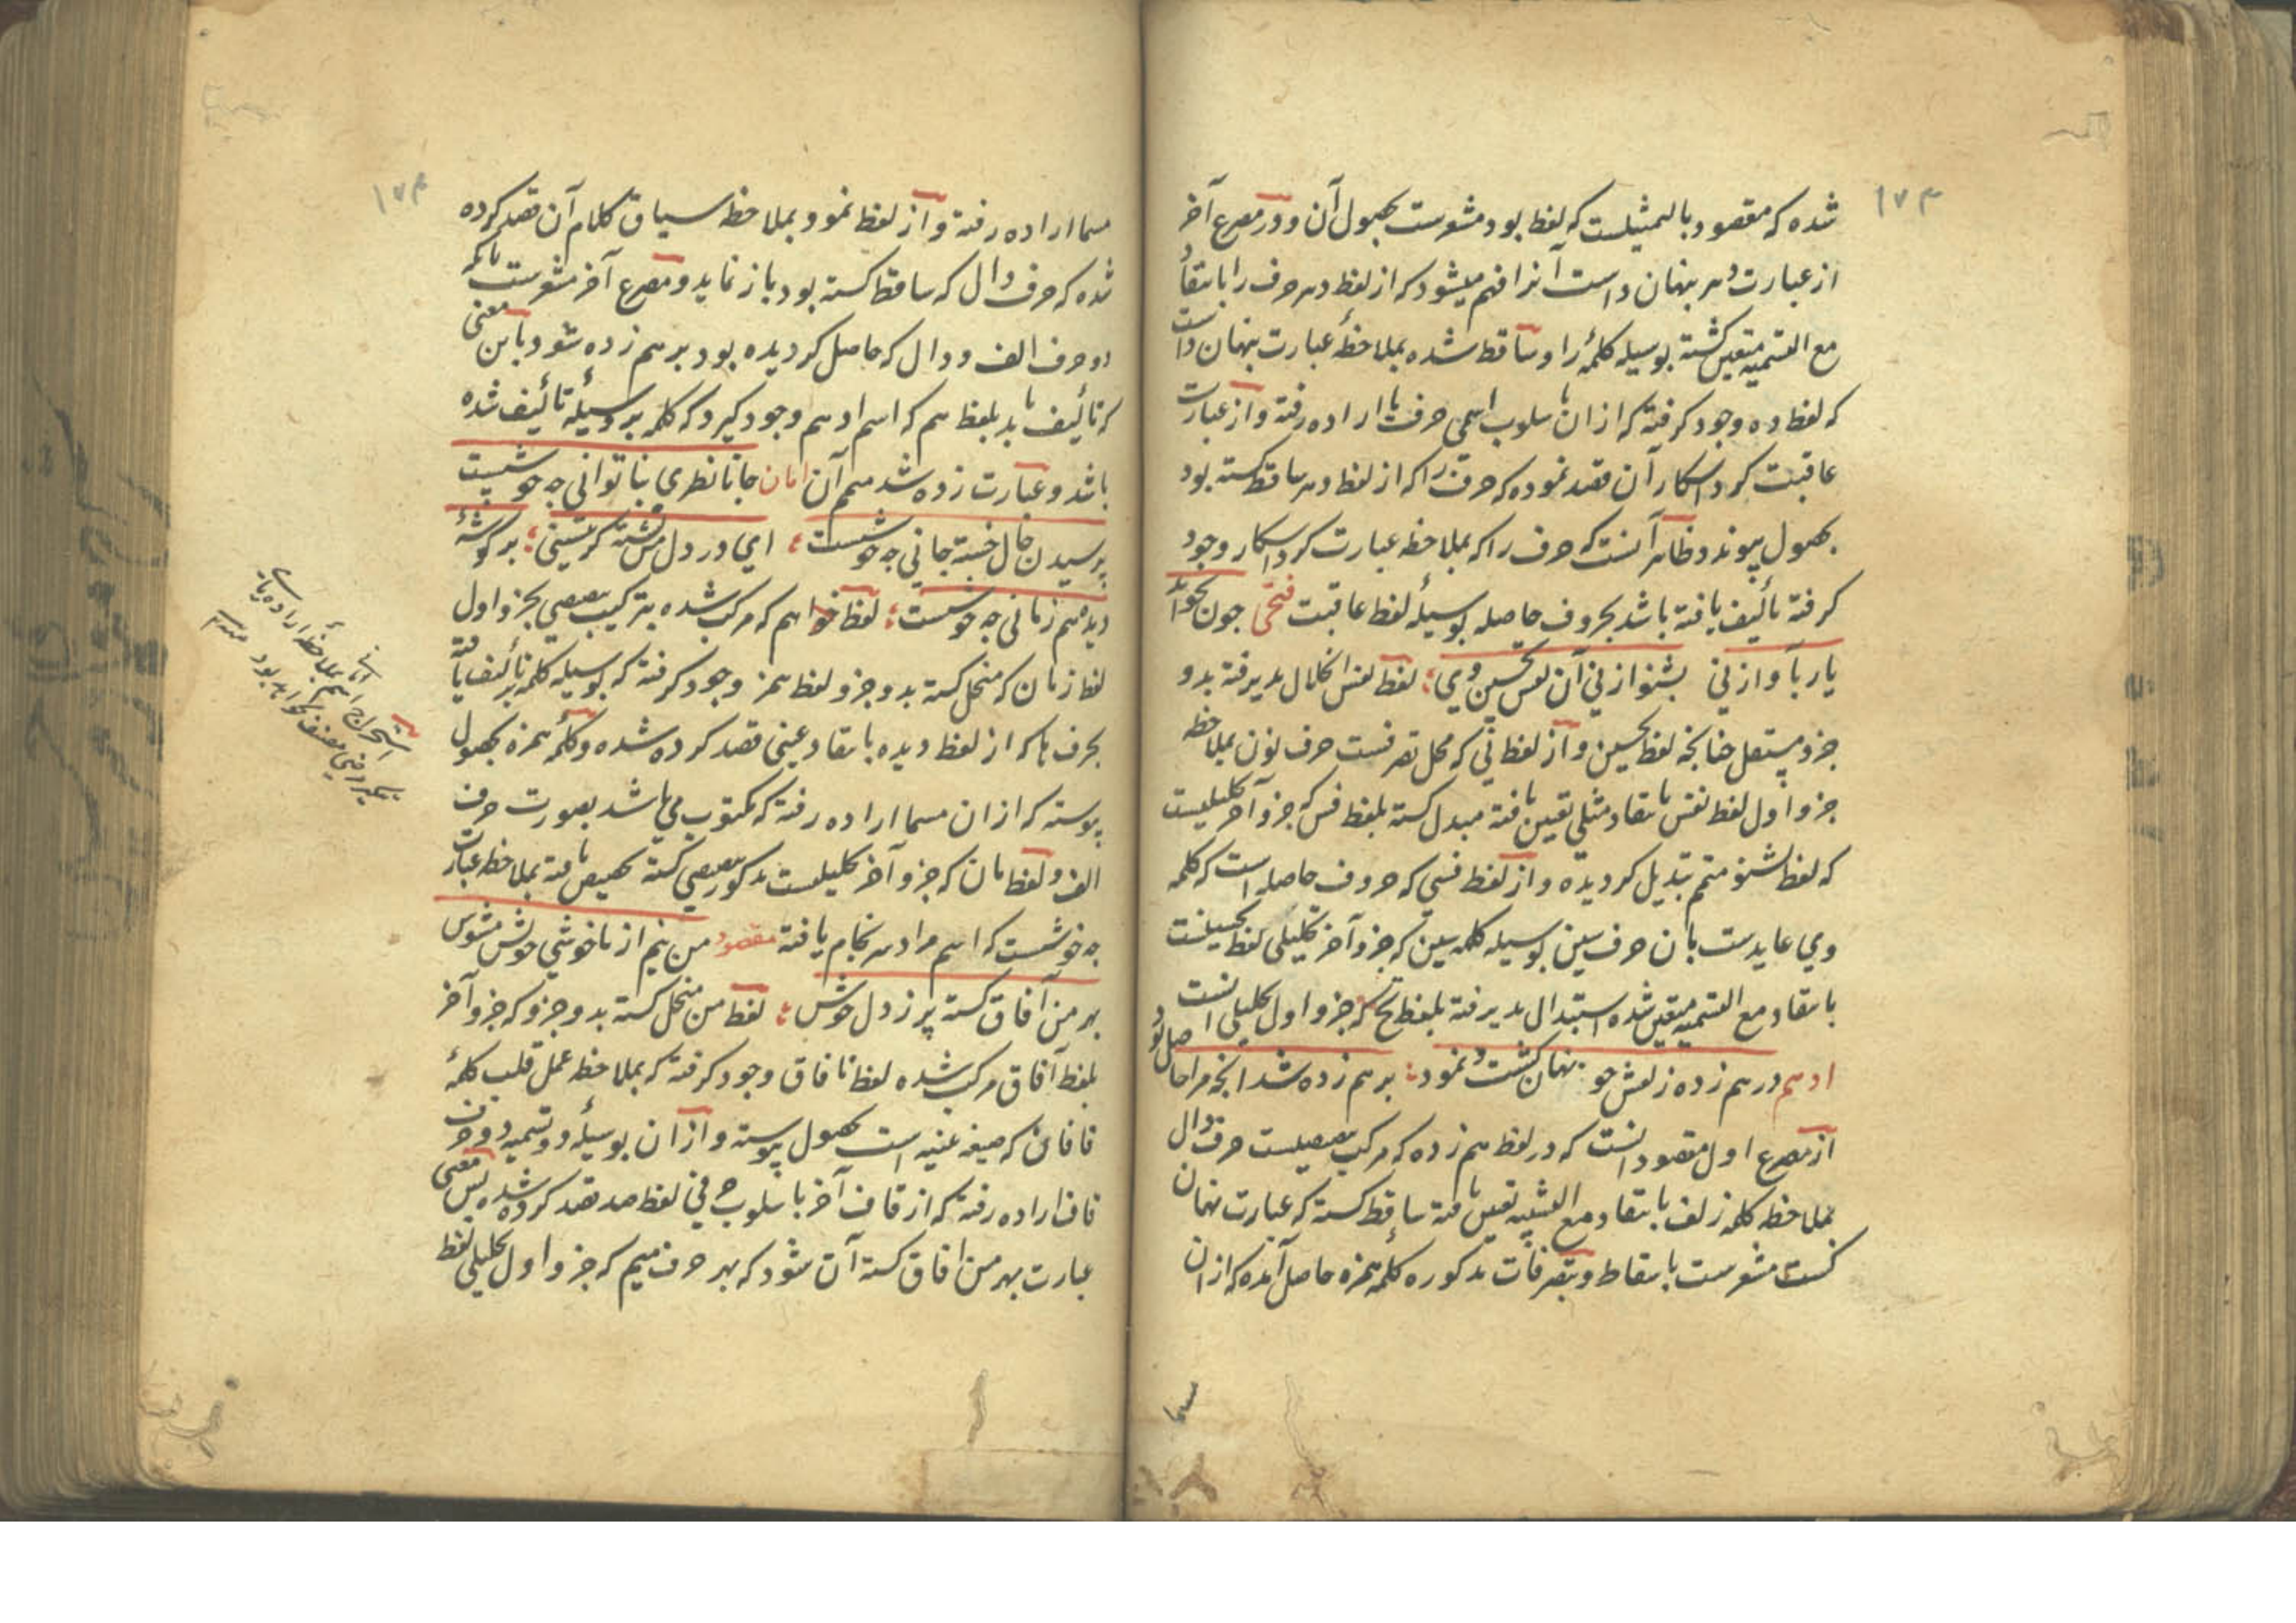 ۱۷۳
شده که مقصود بالتمثیلست که لفظ بود مشعرست بحصول آن و در مصرع آخر
از عبارت دهر پنهان داست آنرا فهم میشود که از لفظ دهر حرف را بانتقاد
مع التسمیه متعین کشته بوسیله کلمهٔ را و ساقط شده بملاحظهٔ عبارت پنهان داست
که لفظ ده وجود کرفته که از ان باسلوب اسمی حرف با اراده رفته و از عبارت
عاقبت کرد اشکار آن قصد نموده که حرف را که از لفظ دهر ساقط کشته بود
بحصول پیوندد و ظاهر آنست که حرف را که بملاحظه عبارت کرد اشکار وجود
کرفته تألیف یافته باشد بحروف حاصله بوسیلهٔ لفظ عاقبت فتحی جون بخواند
یار با واز نی بشنو از نی آن نفس تحسین وی لفظ نفس انحلال پذیرفته بدو
جزو مستقل جنانجه لفظ تحسین و از لفظ نی که محل تصرفست حرف نون بملاحظه
جزو اول لفظ نفس بانتقاد مثلی تعین یافته مبدل کشته بلفظ فس که جزو آخر تحلیلیست
که لفظ بشنو متمم تبدیل کردیده و از لفظ فسی که حروف حاصله است که کلمه
وی عایدست بان حرف سین بوسیله کلمه سین که جزو آخر تحلیلی لفظ تحسینست
بانتقاد مع التسمیه متعین شده استبدال پذیرفته بلفظ تح که جزو اول تحلیلی انست
ادهم درهم زده زلفش جو پنهان کشت و نمود برهم زده شد انجه مرا حاصل بود
از مصرع اول مقصود انست که در لفظ هم زده که مرکب تنصیصیست حرف دال
بملاحظه کلمه زلف بانتقاد مع التشبیه تعین یافته ساقط کشته که عبارت نهان
کشت مشعرست باسقاط و بتصرفات مذکوره کلمه همزه حاصل آمده که از ان
مسما
۱۷۴
مسما اراده رفته و از لفظ نمود بملاحظه سیاق کلام آن قصد کرده
شده که حرف دال که ساقط کشته بود باز نماید و مصرع آخر مشعرست بانکه
دو حرف الف و دال که حاصل کردیده بود برهم زده شود باین معنی
که تألیف یابد بلفظ هم که اسم ادهم وجود کیرد که کلمه بر وسیلهٔ تألیف شده
باشد و عبارت زده شد متمم آن امان جانا نظری بناتوانی جه خوشست
پرسیدن حال خسته جانی جه خوشست ای در دل من نشسته کر بنشینی بر کوشهٔ
دیده هم زمانی جه خوشست لفظ خواهم که مرکب شده بترکیب تنصیصی بجزو اول
لفظ زمان که منحل کشته بدو جزو لفظ همز وجود کرفته که بوسیله کلمه بر تألیف یافته
بحرف ها که از لفظ دیده بانتقاد عینی قصد کرده شده و کلمهٔ همزه بحصول
پیوسته که از ان مسما اراده رفته که مکتوب می باشد بصورت حرف
الف و لفظ مان که جزو آخر تحلیلیست مذکور تنصیصی کشته تحصیص یافته بملاحظه عبارت
جه خوشست که اسم مراد سرانجام یافته مقصود من نیم از ناخوشی خویش مشوش
بهر من آفاق کشته پر ز دل خوش لفظ من منحل کشته بدو جزو که جزو آخر
بلفظ آفاق مرکب شده لفظ نافاق وجود کرفته که بملاحظه عمل قلب کلمهٔ
قافان که صیغه تثنیه است بحصول پیوسته و از ان بوسیلهٔ دو تسمیه دو حرف
قاف اراده رفته که از قاف آخر باسلوب حرفی لفظ صد قصد کرده شده پس معنی
عبارت بهر من افاق کشته آن شود که بهر حرف میم که جزو اول تحلیلی لفظ